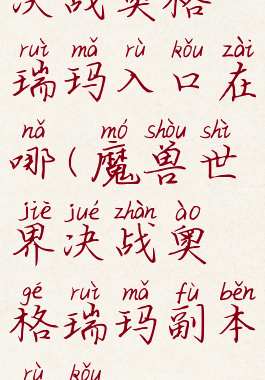 决战奥格
ruì mǎ rù kǒu zài
瑞玛入口在
nǎ mó shòu shì
哪(魔兽世
jiè jué zhàn ào
界决战奥
gé ruì mǎ fù běn
格瑞玛副本
rù kǒu